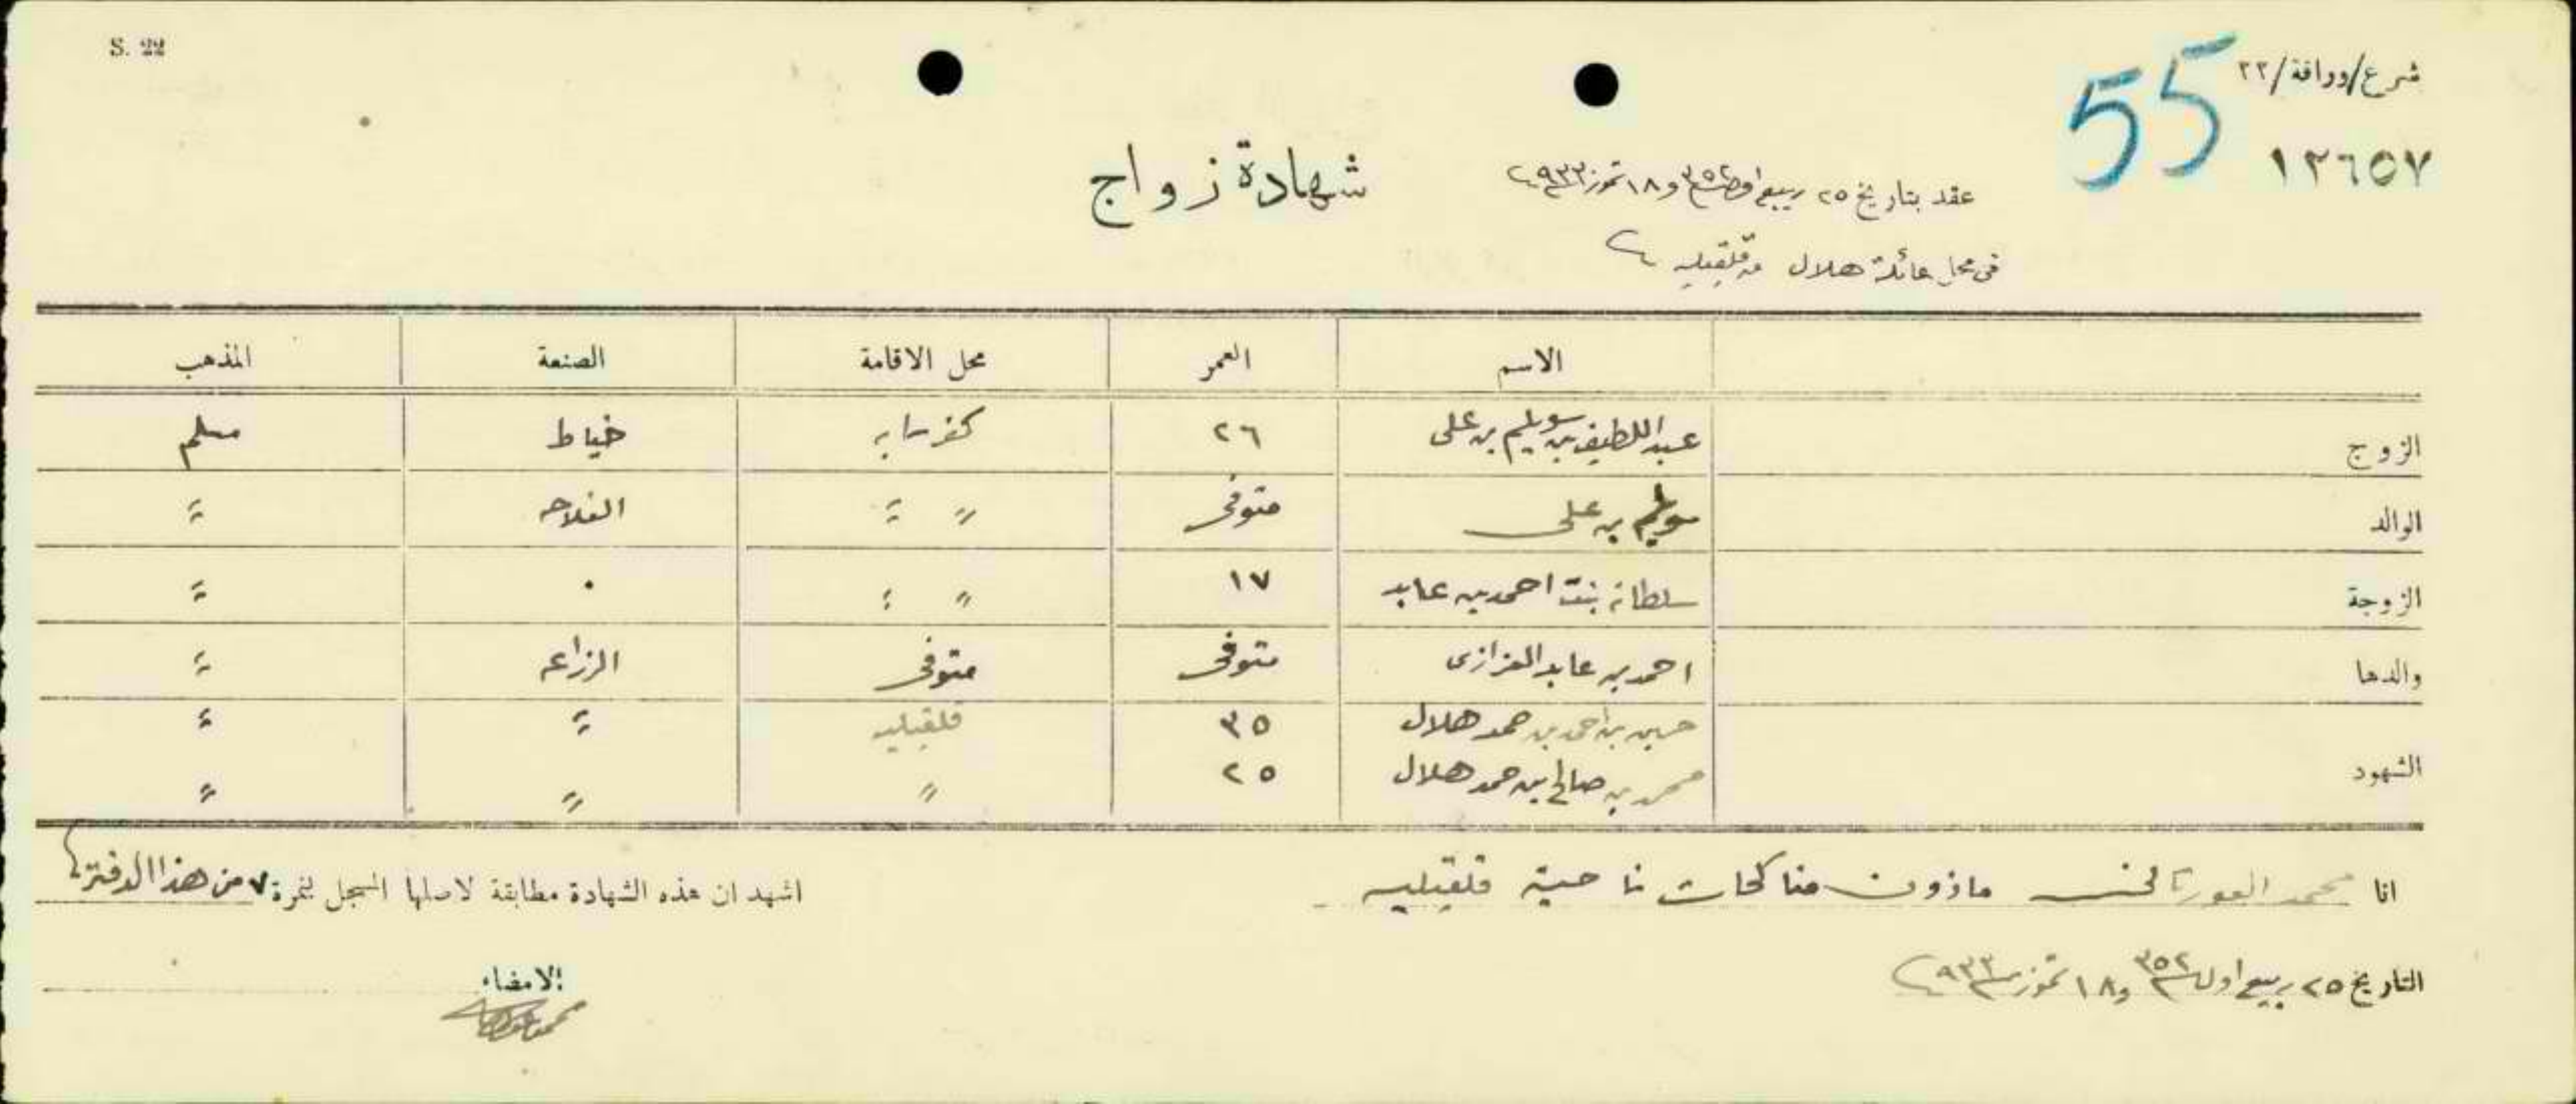 S. 22
شرع/وراقة/٢٢
55
١٢٦٥٧
شهادة زواج
عقد بتاريخ ٢٥ ربيع اول سنة ٣٥٢ و ١٨ تموز سنة ٩٣٣
في محل عائلة هلال من قلقيليه
الاسم العمر محل الاقامة الصنعة المذهب
الزوج عبد اللطيف بن سويلم بن علي ٢٦ كفرسابه خياط مسلم
الوالد سويلم بن علي متوفى " " الفلاحه "
الزوجة سلطانه بنت احمد بن عابد ١٧ " " ٠ "
والدها احمد بن عابد العزازى متوفى متوفى الزراعه "
الشهود حسين بن احمد بن حمد هلال ٣٥ قلقيليه " "
محمد بن صالح بن حمد هلال ٢٥ " " "
انا محمد ماذون مناكحات ناحية قلقيليه
اشهد ان هذه الشهادة مطابقة لاصلها المسجل بنمرة ٧ من هذا الدفتر
التاريخ ٢٥ ربيع اول سنة ٣٥٢ و ١٨ تموز سنة ٩٣٣
الامضاء